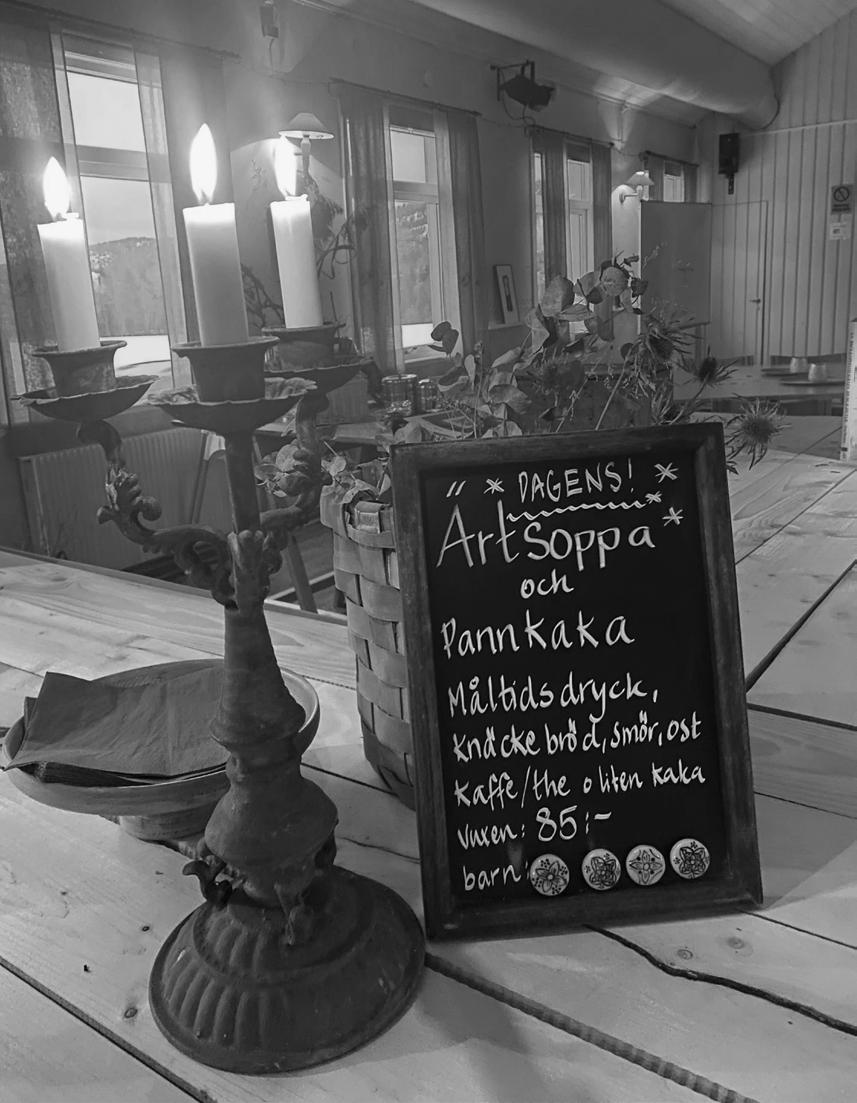 DAGENS!
Ärtsoppa
och
Pannkaka
Måltidsdryck,
Knäckebröd, smör, ost
Kaffe/the o liten kaka
Vuxen: 85:-
barn: